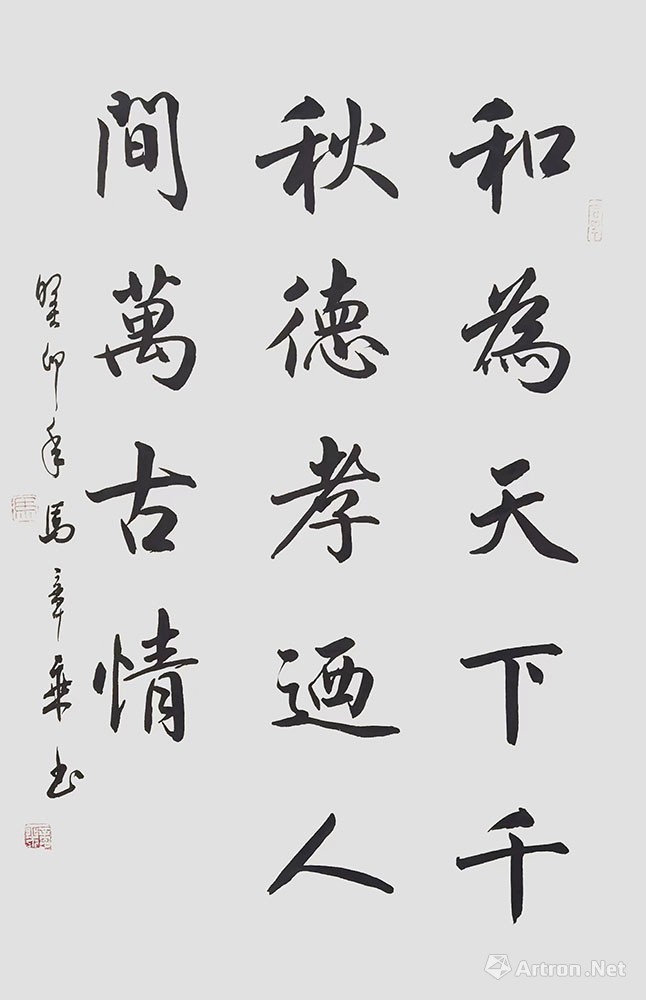 和為天下千
秋德孝迺人
間萬古情
癸卯年馬章乘书
Artron.Net